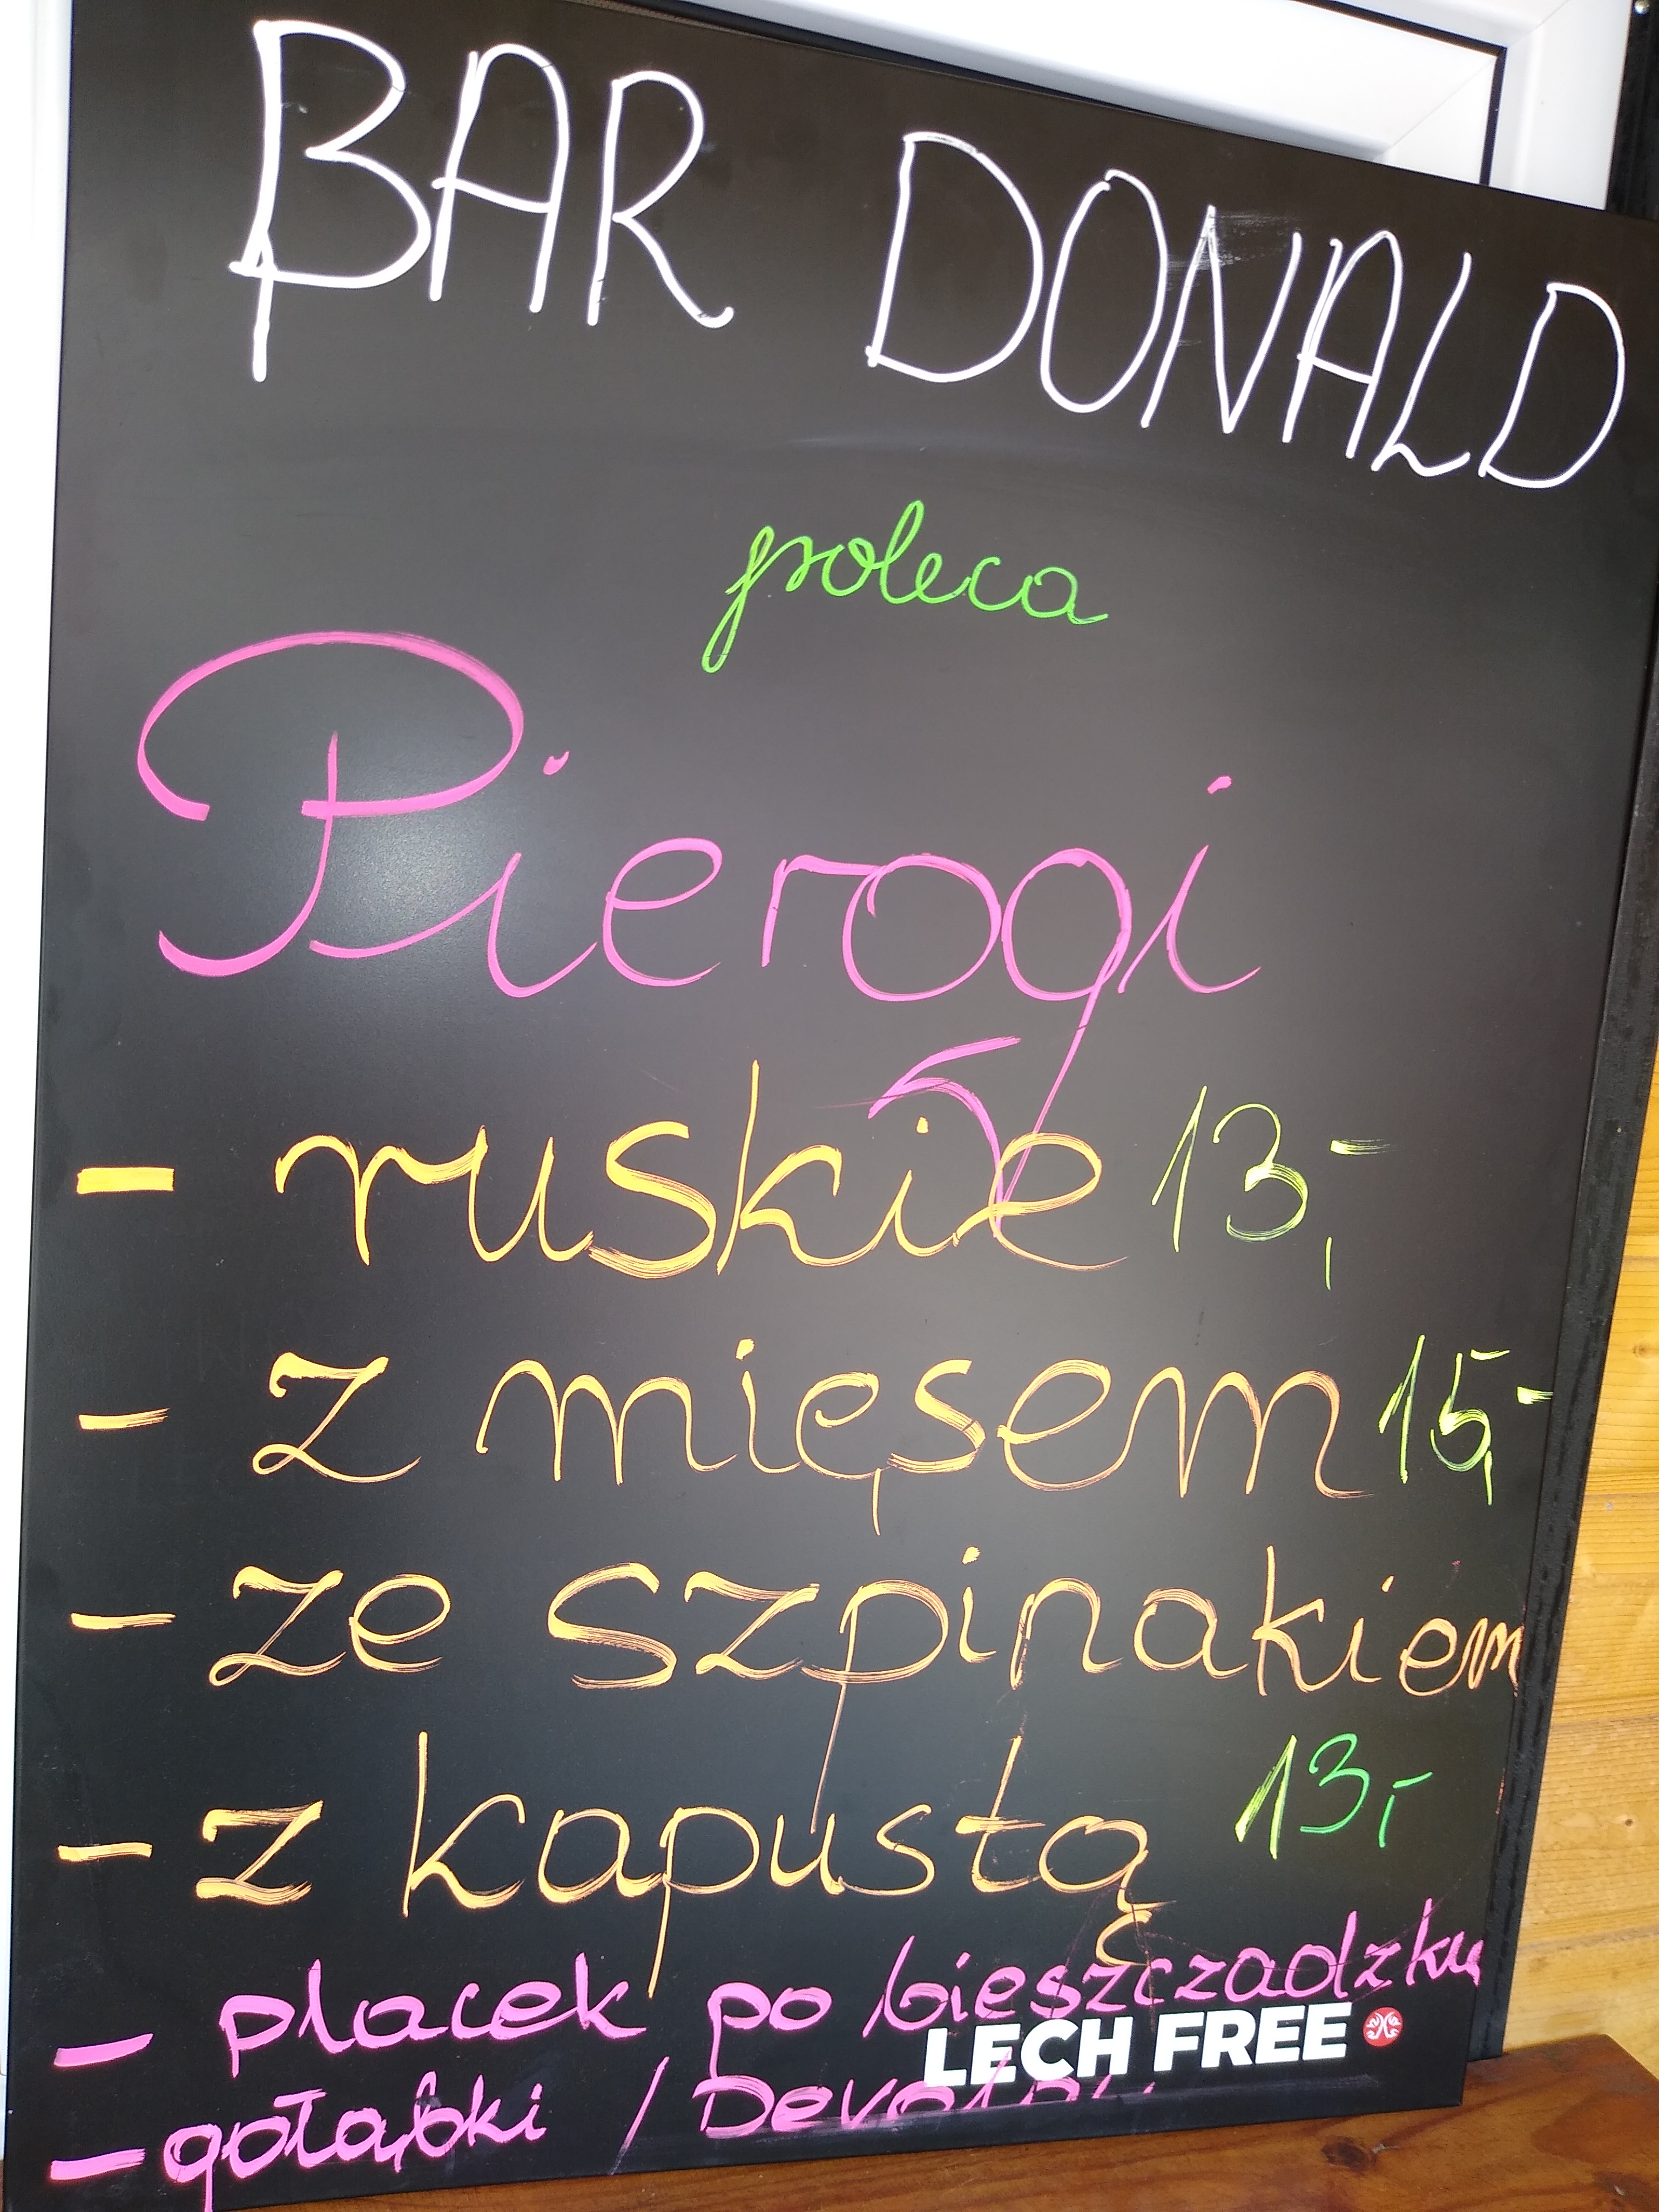 BAR DONALD
poleca
Pierogi
- ruskie 13,-
- z mięsem 15,-
- ze szpinakiem
- z kapustą 13,-
- placek po bieszczadzku
LECH FREE
- gołąbki /